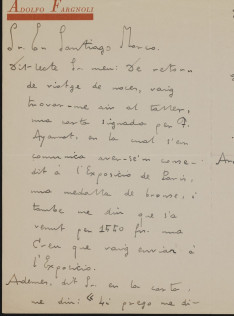 ADOLFO FARGNOLI
Sr. En Santiago Marco.
Dil·lecte Sr. meu: De retorn
de viatge de noces, vaig
trovar-me air al taller,
una carta signada per F.
Ayamat, en la cual l'en
comunica aver-se'm conce-
dit á l'Exposició de Paris,
una medalla de bronse, i
tambe me diu que s'a
venut per 1550 frs. una
Creu que vaig enviar á
l'Exposició.
Ademes, dit Sr. en la carta
me diu: "Li prego me di-
An